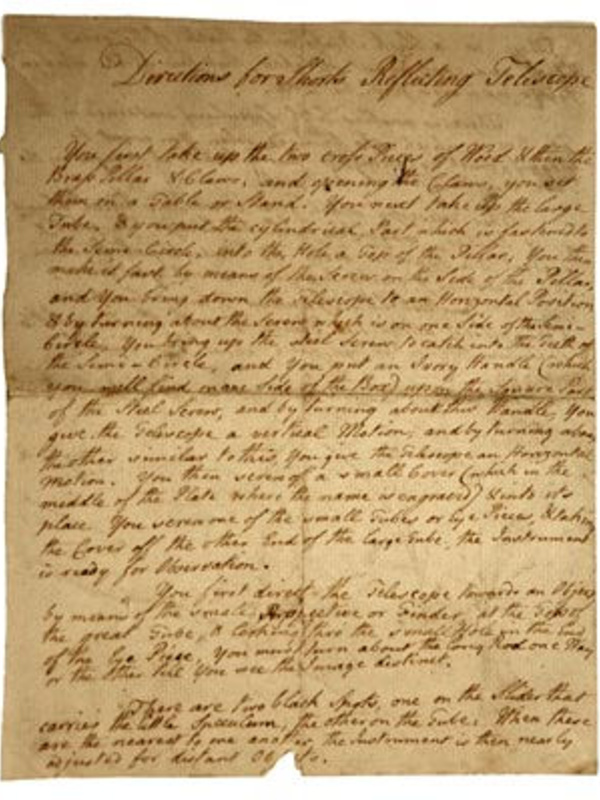 Directions for Shorts Reflecting Telescope
You first take up the two cross Pieces of Wood & then the
Brass Pillar & Claws, and opening the Claws, you set
them on a Table or Stand. You next take up the large
Tube, & you put the cylindrical Part which is fastened to
the Semi-Circle, into the Hole a Top of the Pillar, You then
make it fast by means of the Screw on the Side of the Pillar,
and you bring down the Telescope to an Horizontal Position
& by turning about the Screw which is on one Side of the Semi-
Circle, You bring up the steel Screw to catch into the Teeth of
the Semi-Circle, and You put an Ivory Handle (which
you will find on one Side of the Box) upon the Square Part
of the Steel Screw, and by turning about this Handle, You
give the Telescope a vertical Motion, and by turning about
the other similar to this, You give the Telescope an Horizontal
Motion. You then screw off a small Cover (which in the
middle of the Plate where the name is engraved) & into it's
place You screw one of the small Tubes or Eye Pieces, & taking
the Cover off the other End of the large Tube, the Instrument
is ready for Observation.
You first direct the Telescope towards an Object
by means of the small Perspective or Finder, at the Top of
the great Tube, & looking thro the small Hole in the End
of the Eye Piece, You must turn about the long Rod one Way
or the other till You see the Image distinct.
There are two black Spots, one on the Slider that
carries the little Speculum, the other on the Tube: When these
are the nearest to one another the Instrument is then nearly
adjusted for distant